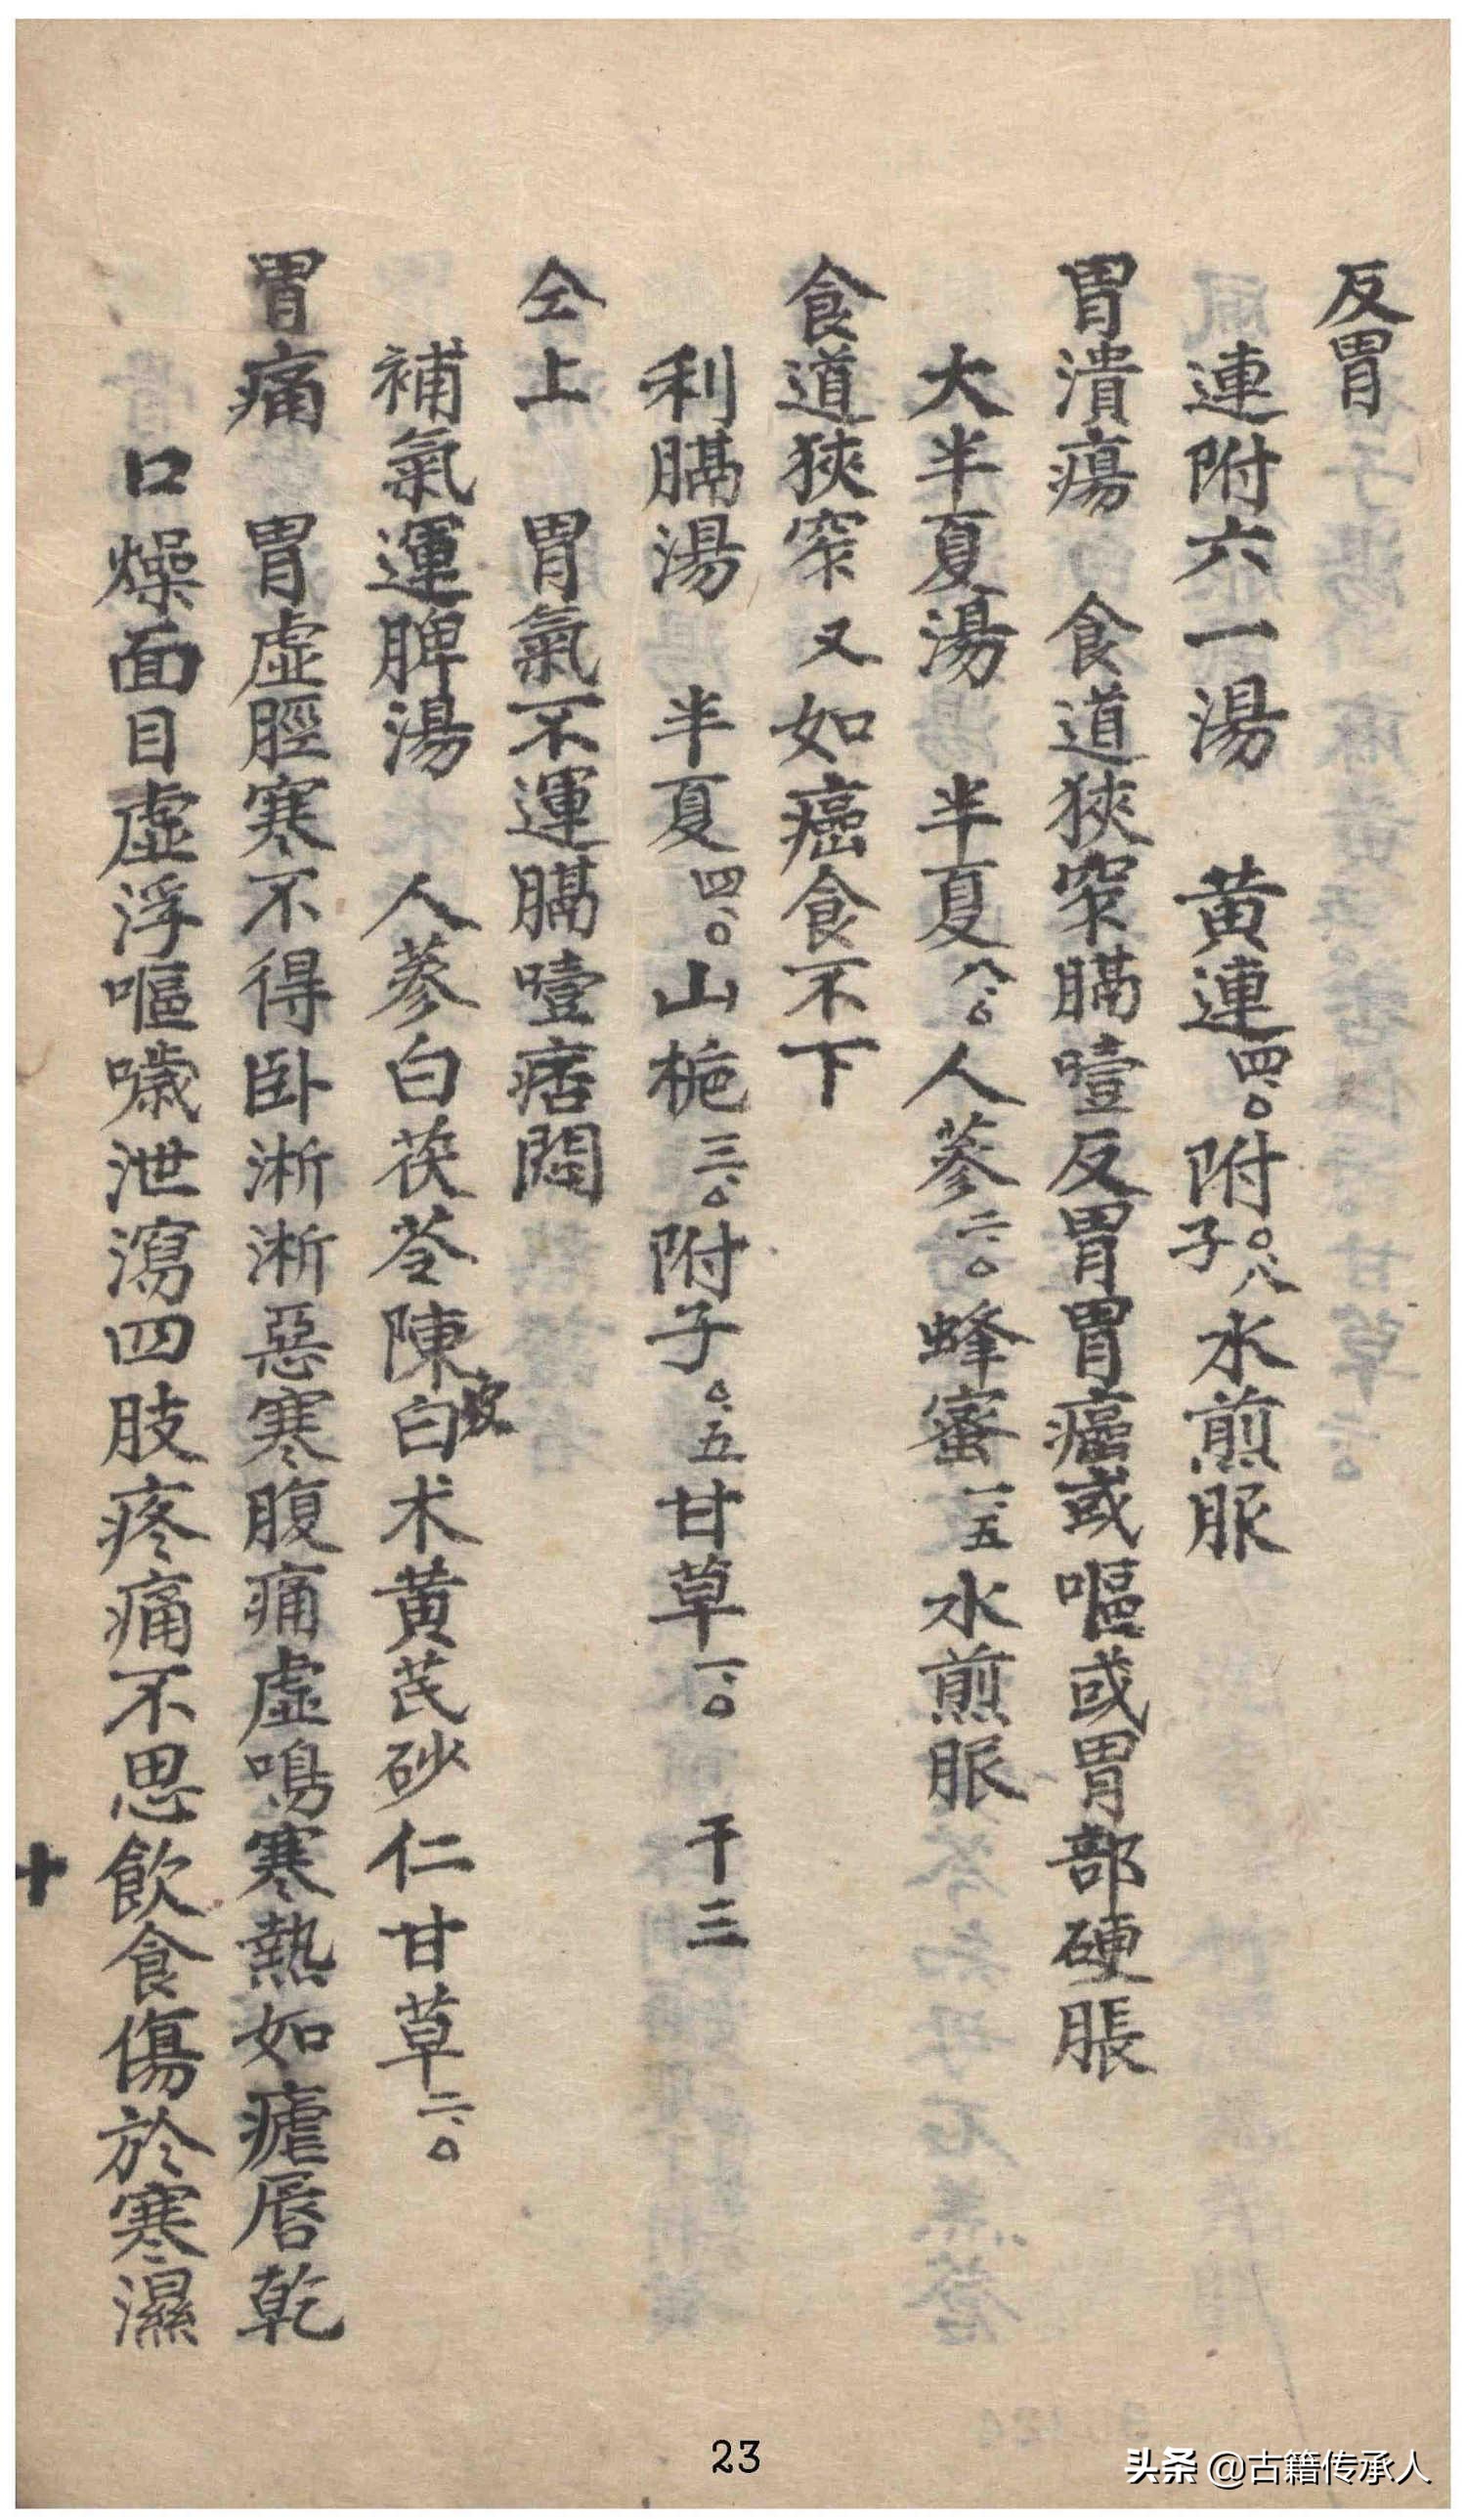 反胃
連附六一湯　黄連四、〇附子〇、八水煎服
胃潰瘍　食道狹窄膈噎反胃胃癌或嘔或胃部硬脹
大半夏湯　半夏八、〇人蔘二、〇蜂蜜一、五水煎服
食道狹窄又如癌食不下
利膈湯　半夏四、〇山梔三、〇附子〇、五甘草一、〇　干三
仝上　胃氣不運膈噎痞悶
補氣運脾湯　人蔘白茯苓陳皮白术黄芪砂仁甘草二、〇
胃痛　胃虛脛寒不得卧淅淅惡寒腹痛虛鳴寒熱如瘧唇乾
口燥面目虛浮嘔噦泄瀉四肢疼痛不思飲食傷於寒濕
十
23
头条 @古籍传承人